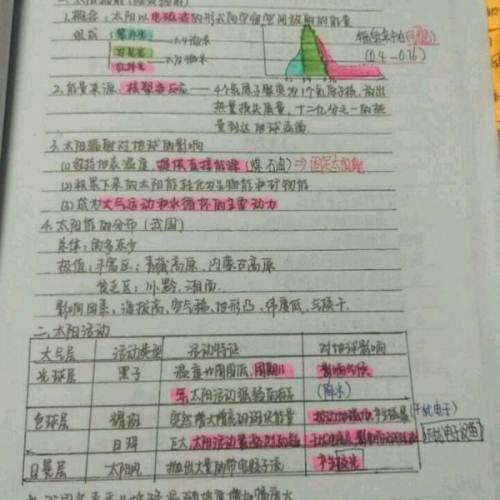 1.概念:太阳以电磁波的形式向宇宙空间放射的能量
组成
紫外光
可见光 0.4微米
红外光 0.76微米
能量集中在可见光
(0.4-0.76)
2.能量来源:核聚变反应——4个氢原子聚变为1个氦原子核,放出
热量损失质量,二十二亿分之一的热
量到达地球表面
3.太阳辐射对地球的影响
(1)维持地表温度,提供直接能源(煤 石油)⇒固定太阳能
(2)积累下来的太阳能转化为生物能和矿物能
(3)成为大气运动和水循环的主要动力
4.太阳能的分布(我国)
总体:西多东少
极值:丰富区:青藏高原、内蒙古高原
贫乏区:川黔、湘南
影响因素:海拔高,空气稀,地形凸,纬度低,气候干
二、太阳活动
大气层 活动类型 活动特征 对地球影响
光球层 黑子 温度比周围低,周期11 影响气候
年 太阳活动强弱的标志 (降水)
色球层 耀斑 突然增大增亮的斑状能量 (干扰电子)
日珥 巨大 太阳活动最激烈的显示 干扰电子设备
日冕层 太阳风 抛出大量的带电粒子流 产生极光